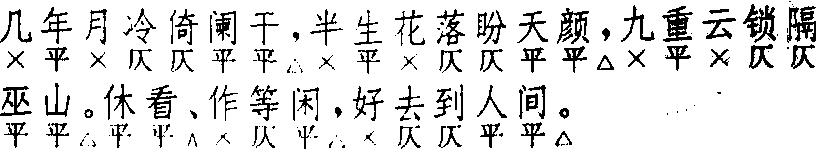 几年月冷倚阑干，半生花落盼天颜，九重云锁隔
×平×仄仄平平△×平×仄仄平平△×平×仄仄
巫山。休看、作等闲，好去到人间。
平平△平平∧×仄平△×仄仄平平△